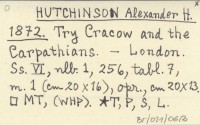 HUTCHINSON Alexander H.
1872. Try Cracow and the
Carpathians. — London.
Ss. VI, nlb. 1, 256, tabl. 7,
m. 1 (cm 20 x 16), opr., cm 20x13.
□ MT, (WHP). ★T, P, S, L.